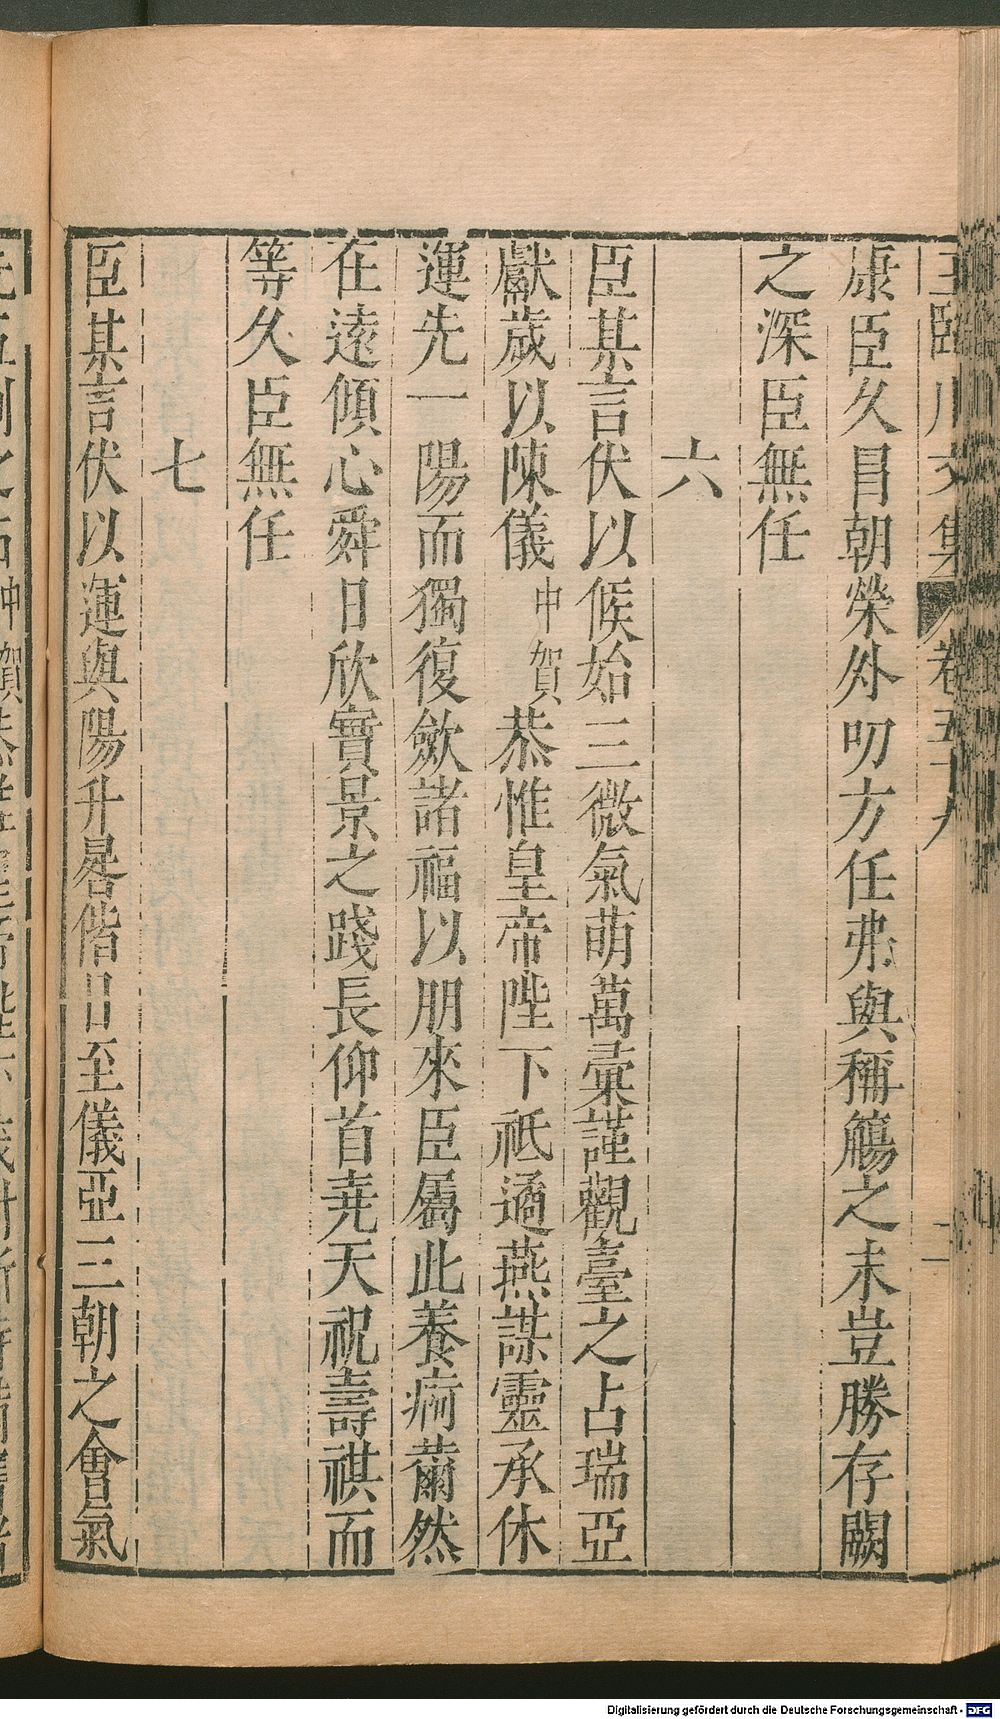 王臨川文集 卷五十八 二
康臣久冒朝榮外叨方任弗與稱觴之末豈勝存闕
之深臣無任
六
臣某言伏以候始三微氣萌萬彙謹觀臺之占瑞亞
獻歲以陳儀中賀恭惟皇帝陛下祗遹燕謀靈承休
運先一陽而獨復斂諸福以朋來臣屬此養痾薾然
在遠傾心舜日欣實景之踐長仰首堯天祝壽祺而
等久臣無任
七
臣某言伏以運與陽升晷偕日至儀亞三朝之會氣
Digitalisierung gefördert durch die Deutsche Forschungsgemeinschaft - DFG